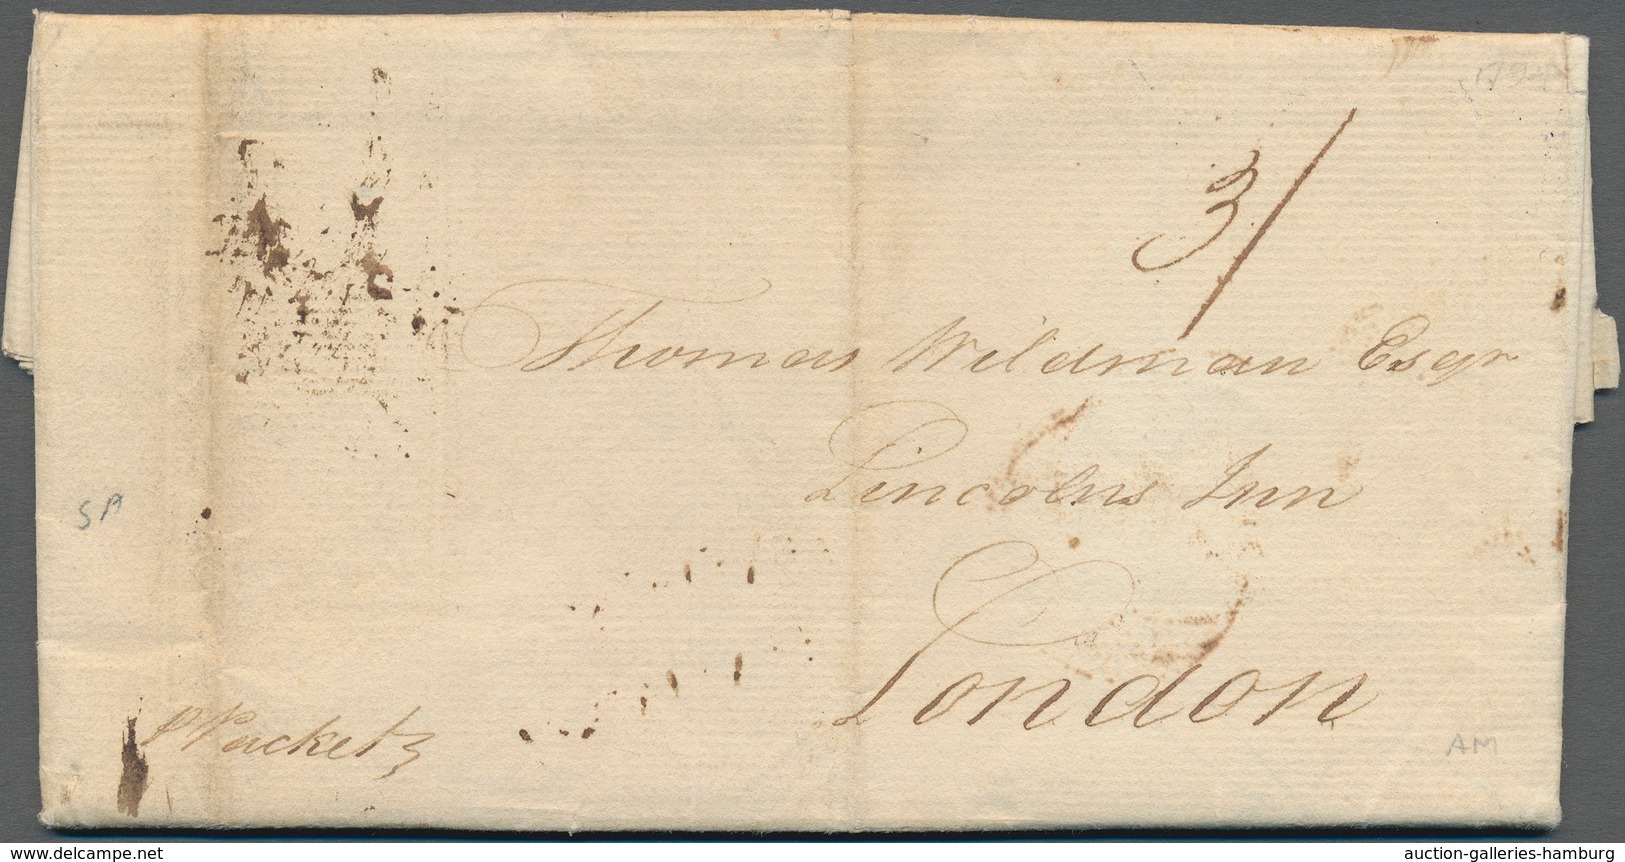 3/
Thomas Wildman Esqr
Lincolns Inn
London
P Packet
SA
AM
delcampe.net
auction-galleries-hamburg